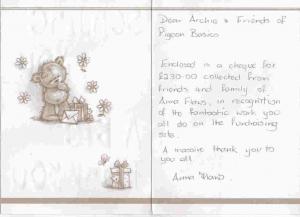 Dear Archie & Friends of
Pigeon Basics
Enclosed is a cheque for
£230.00 collected from
friends and family of
Anna in recognition
of the fantastic work you
all do on the Purchasing
site.
A massive thank you to
you all.
Anna